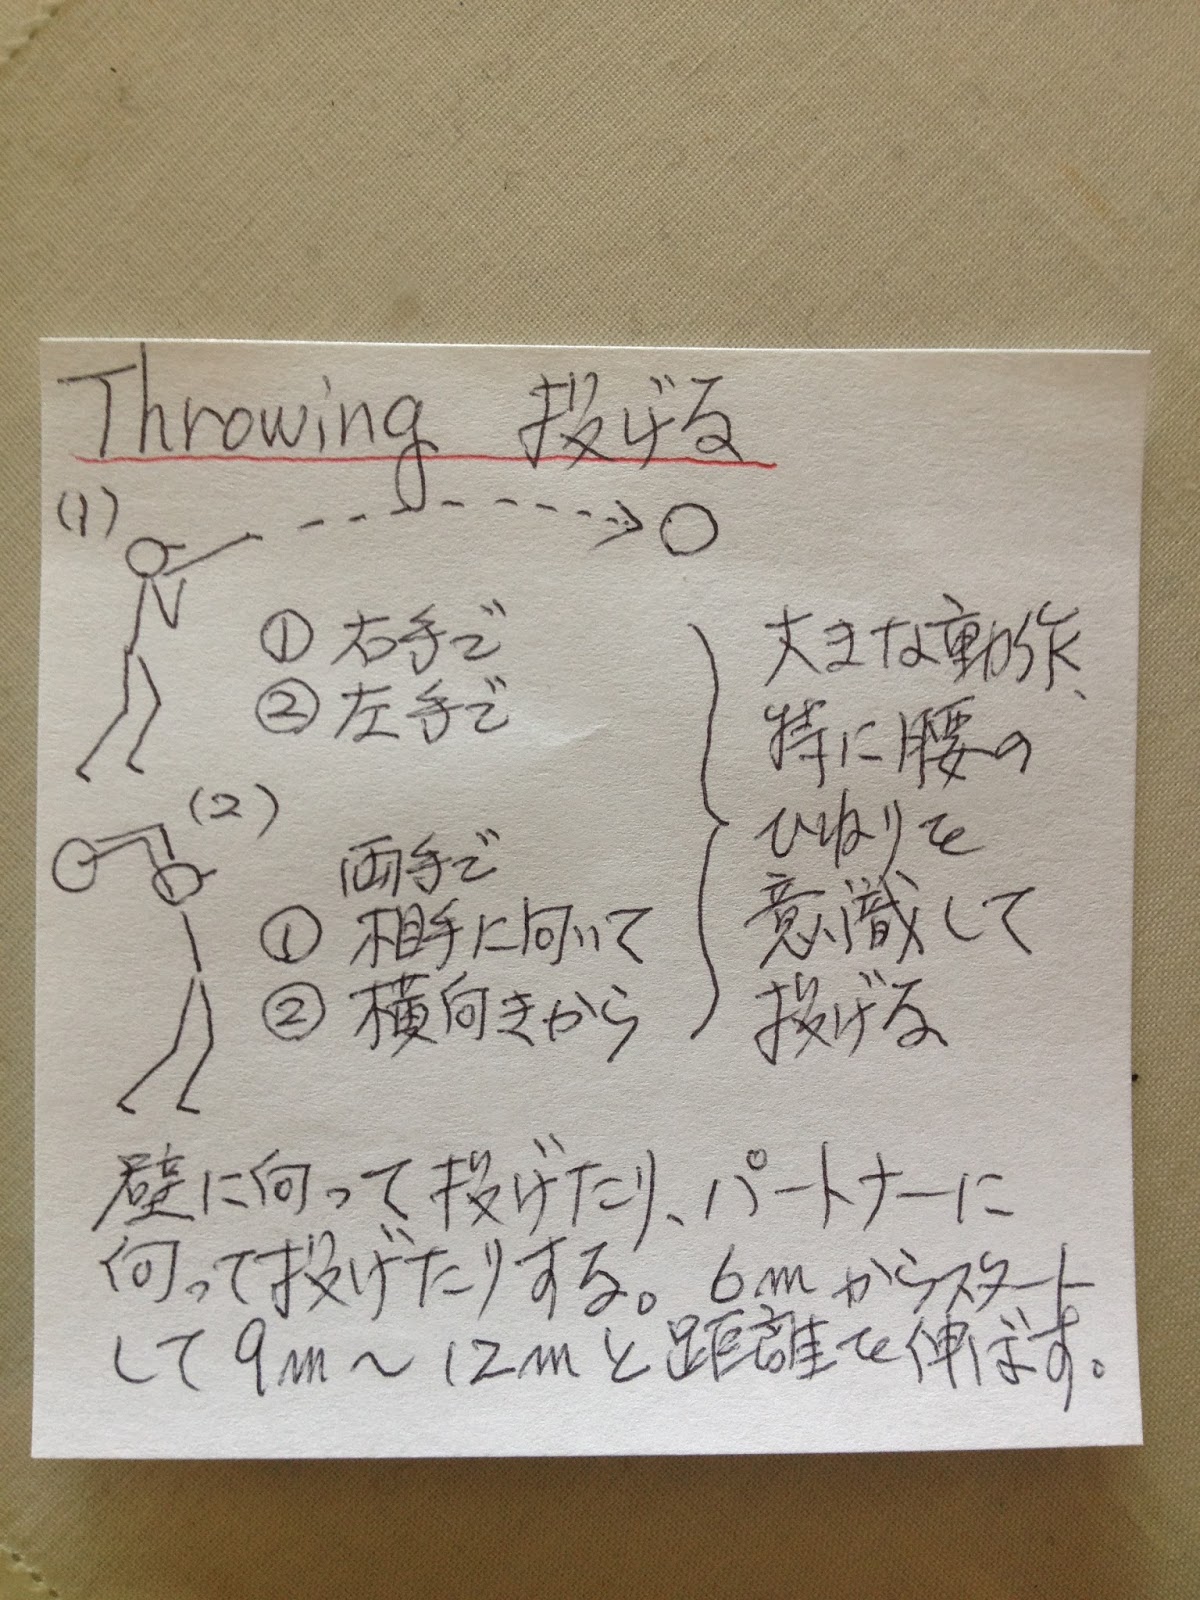 Throwing 投げる
(1)
① 右手で
② 左手で
(2)
両手で
① 相手に向いて
② 横向きから
大きな動作、
特に腰の
ひねりを
意識して
投げる
壁に向って投げたり、パートナーに
向って投げたりする。6mからスタート
して9m〜12mと距離を伸ばす。